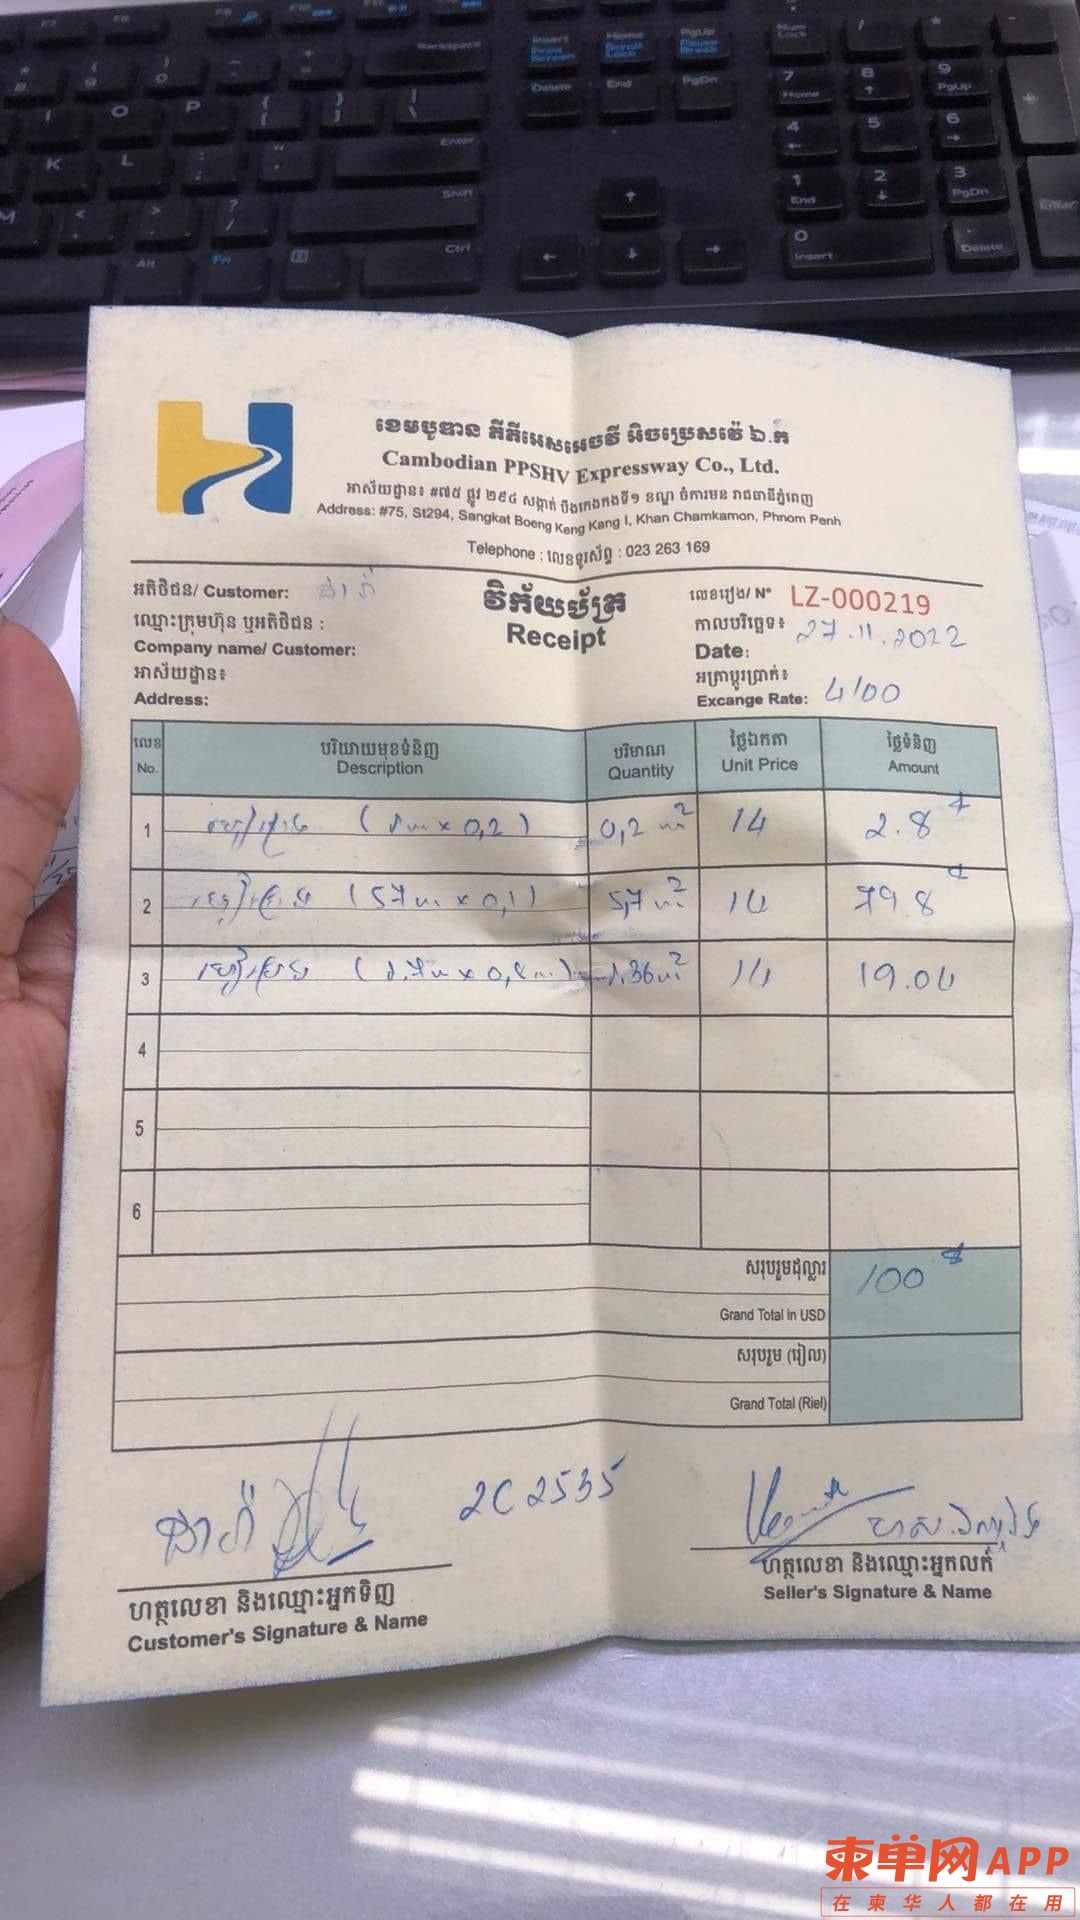 ខេមបូឌាន ភីភីអេសអេចវី អិចប្រេសវ៉េ ឯ.ក
Cambodian PPSHV Expressway Co., Ltd.
អាស័យដ្ឋាន៖ #៧៥ ផ្លូវ ២៩៤ សង្កាត់ បឹងកេងកងទី១ ខណ្ឌ ចំការមន រាជធានីភ្នំពេញ
Address: #75, St294, Sangkat Boeng Keng Kang I, Khan Chamkamon, Phnom Penh
Telephone : លេខទូរស័ព្ទ : 023 263 169
អតិថិជន/ Customer: ដារ៉ា
ឈ្មោះក្រុមហ៊ុន ឬអតិថិជន :
Company name/ Customer:
អាស័យដ្ឋាន៖
Address:
វិក័យប័ត្រ
Receipt
លេខរៀង/ N° LZ-000219
កាលបរិច្ឆេទ៖ 27.11.2022
Date:
អត្រាប្តូរប្រាក់៖
Excange Rate: 4100
លេខ បរិយាយមុខទំនិញ បរិមាណ ថ្លៃឯកតា ថ្លៃទំនិញ
No. Description Quantity Unit Price Amount
1 (1m × 0,2) 0,2 m² 14 2.8$
2 (57m × 0,1) 5,7m² 14 79.8$
3 (1.7m × 0,8m) 1.36m² 14 19.04
4
5
6
សរុបរួមដុល្លារ 100$
Grand Total in USD
សរុបរួម (រៀល)
Grand Total (Riel)
ដារ៉ា 2C2535
ហត្ថលេខា និងឈ្មោះអ្នកទិញ
Customer's Signature & Name
ហត្ថលេខា និងឈ្មោះអ្នកលក់
Seller's Signature & Name
柬单网APP
在柬华人都在用